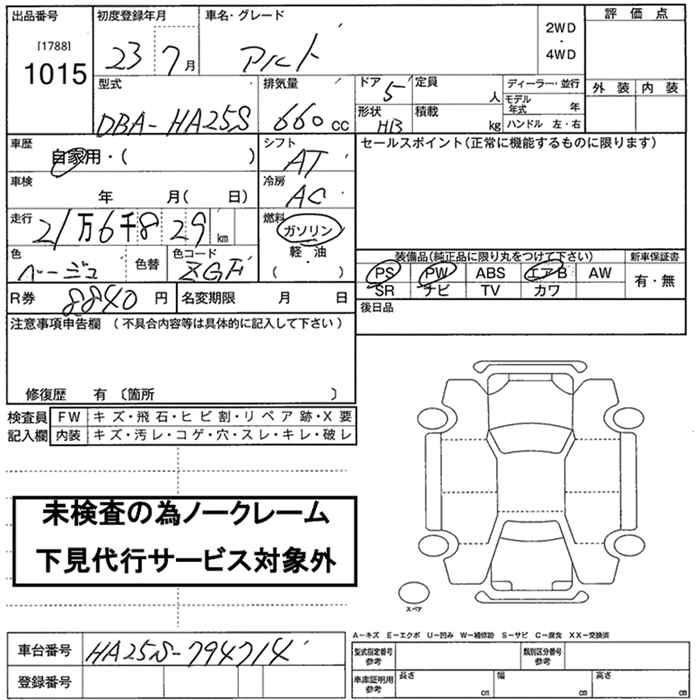 出品番号 初度登録年月 車名・グレード 2WD・4WD 評価点
[1788]
1015 23 7月 アルト
外装 内装
型式 排気量 ドア 定員 人 ディーラー・並行
DBA-HA25S 660cc 5 モデル年式 年
形状 積載 kg ハンドル 左・右
HB
車歴 自家用・( ) シフト AT セールスポイント(正常に機能するものに限ります)
車検 年 月( 日) 冷房 AC
走行 21万6千829km 燃料 ガソリン 軽・油 ( )
色 ベージュ 色替 色コード ZGF 装備品(純正品に限り丸をつけて下さい) 新車保証書
PS PW ABS エアB AW 有・無
R券 8840円 名変期限 月 日 SR ナビ TV カワ
注意事項申告欄 (不具合内容等は具体的に記入して下さい) 後日品
修復歴 有 〔箇所 〕
検査員 FW キズ・飛石・ヒビ割・リペア跡・X要
記入欄 内装 キズ・汚レ・コゲ・穴・スレ・キレ・破レ
未検査の為ノークレーム
下見代行サービス対象外
スペア
A-キズ E-エクボ U-凹み W-補修跡 S-サビ C-腐食 XX-交換済
車台番号 HA25S-794714 型式指定番号 参考 類別区分番号 参考
登録番号 車庫証明用 参考 長さ cm 幅 cm 高さ cm